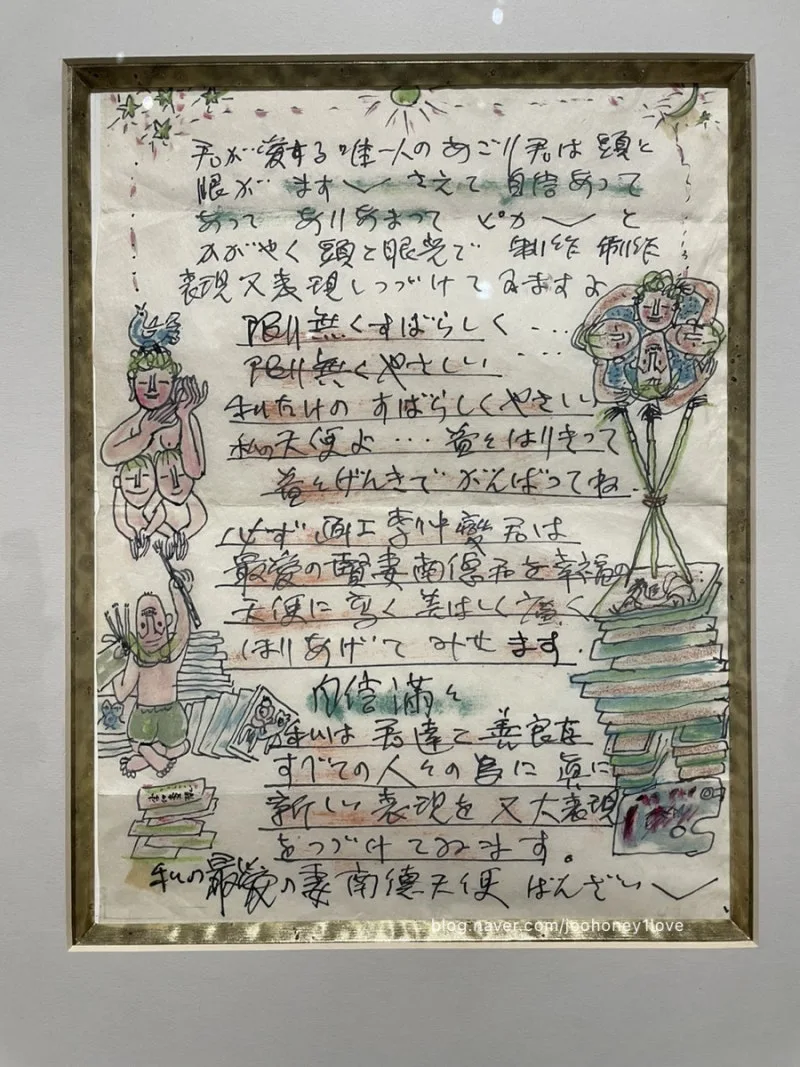 君が愛する唯一人のあごり君は頭と
眼が ます〳〵 さえて 自信あって
あって ありあまって ピカ〳〵 と
かがやく 頭と眼光で 制作 制作
表現又表現しつづけてゐますよ
限り無くすばらしく・・・
限り無くやさしい・・・
私だけの すばらしくやさしい
私の天使よ・・・益々はりきって
益々げんきで がんばってね.
必ず 画工李仲燮君は
最愛の賢妻南徳君を幸福の
天使に 高く 美はしく 広く
ほりあげて みせ ます.
自信満々
私は 君達と 善良な
すべての人々の為に 真に
新しい 表現を 又大表現
をつづけてゐます。
私の最愛の妻南徳天使 ばんざい〳〵
blog.naver.com/joohoney1love